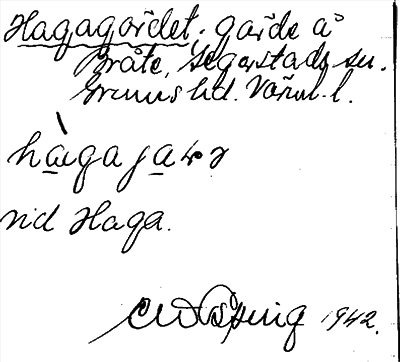 Hagagärdet, gärde å
Bråte, Segerstads sn.
Grums hd. Värml. l.
vid Haga.
1942.